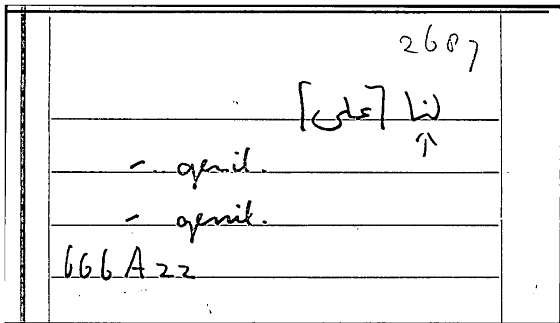 2687
لنا [على]
↑
- genit.
- genit.
666 A 22